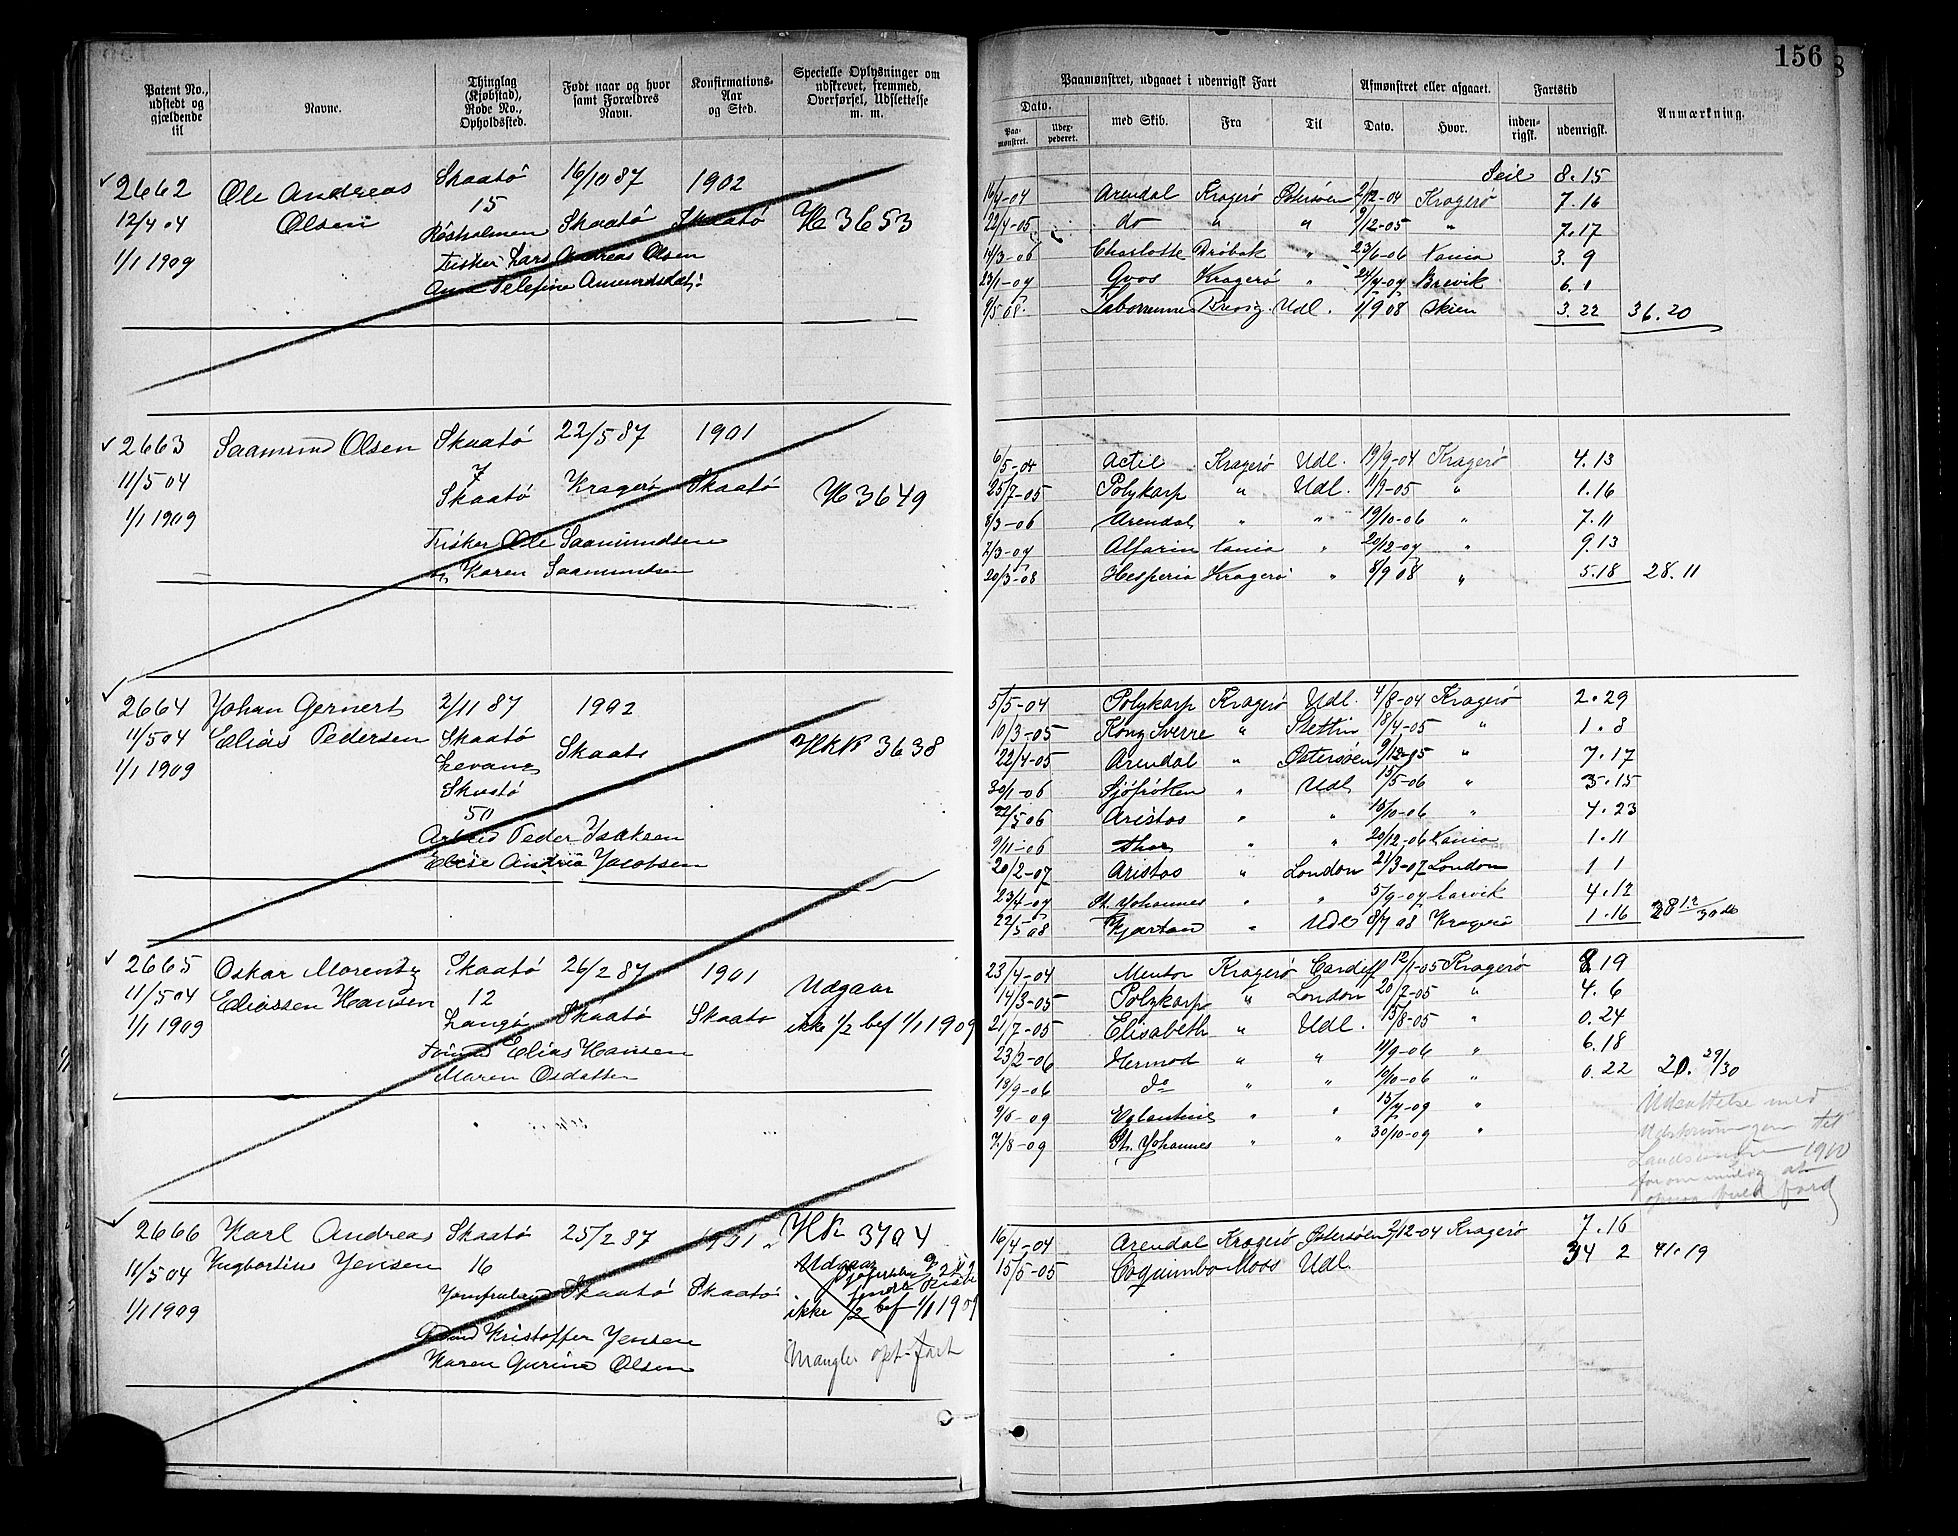 156
8
Patent No., udstedt og gjældende til
Navne.
Thinglag (Kjøbstad), Rode No., Opholdssted.
Født naar og hvor samt Forældres Navn.
Konfirmations-Aar og Sted.
Specielle Oplysninger om udskrevet, fremmed, Overførsel, Udslettelse m. m.
Paamønstret, udgaaet i udenrigsk Fart
Dato.
Paa-mønstret.
Udex-pederet.
med Skib.
Fra
Til
Afmønstret eller afgaaet.
Dato.
Hvor.
Fartstid
inden-rigsk.
udenrigsk.
Anmærkning.
2662 Ole Andreas Skaatö 16/10 87 1902
12/4 04 Olsen 15 Skaatö Skaatö H 3653
1/1 1909
Fisker Lars Andreas Olsen
Anna Telefine Amundsdat:
Seil 8.15
16/4-04 Arendal Kragerö Østersøen 2/12-04 Kragerö 7.16
22/4-05 do " " 9/12-05 " 7.17
14/3-06 Charlotte Dröbak " 23/6-06 Xania 3. 9
23/1-07 Kragerö " Brevik 6. 1
9/5 08. Udl. 1/9 08 Skien 3.22 36.20
2663 Saamund Olsen Skaatö 22/5 87 1901
11/5 04 7
1/1 1909 Skaatö Kragerö Skaatö H 3649
Fisker Ole Saamundsen
Karen Saamundsen
6/5-04 Actil Kragerö Udl. 19/9-04 Kragerö 4.13
25/7-05 Polykarp " Udl. 11/9-05 " 1.16
8/3-06 Arendal " " 19/10-06 " 7.11
7/3-07 Alfarin Xania " 20/12-07 " 9.13
20/3-08 Hesperia Kragerö " 8/9 08 " 5.18 28.11
2664 Johan Gernert 2/11 87 1902
11/5 04 Elias Pedersen Skaatö Skaatö HKR 3638
1/1 1909
Skaatö
50
Arbeid Peder Isaksen
Elise Andrea Jacobsen
5/5-04 Polykarp Kragerö Udl. 4/8-04 Kragerö 2.29
10/3-05 Kong Sverre " Stettin 18/4-05 " 1.8
22/4-05 Arendal " Østersøen 9/12-05 " 7.17
20/1-06 Sjöfröken " Udl 15/5-06 " 3.15
22/5 06 Aristos " " 15/10-06 " 4.23
9/11-06 Thor " " 20/12-06 Xania 1.11
20/2-07 Aristos " London 21/3-07 London 1 1
23/4-07 St. Johannes " " 5/9-07 Larvik 4.12
22/5 08 Kjartan " Udl 8/7 08 Kragerö 1.16 28 12/30
2665 Oskar Morentz Skaatö 26/2 87 1901 Udgaar
11/5 04 Eliassen Hansen 12
1/1 1909 Langö Skaatö Skaatö ikke 1/2 bef 1/1 1909
Elias Hansen
Maren Osdatter
23/4-04 Mentor Kragerö Cardiff 12/1-05 Kragerö 8 19
14/3-05 Polykarp " London 20/7-05 " 4.6
21/7-05 Elisabeth " Udl. 15/8-05 " 0.24
23/2-06 Hermod " " 11/9-06 " 6.18
19/9-06 do " " 10/10-06 " 0.22 20. 29/30
9/6-09 Eglantine " " 15/7-09 "
7/8-09 St. Johannes " " 30/10-09 "
Udsættelse med
Udskrivningen til
1910
2666 Karl Andreas Skaatö 25/2 87 1901 HR 3704
11/5 04 Ingbortius Jensen 16 Udgaar
1/1 1909 Jomfruland Skaatö Skaatö
ikke 1/2 bef 1/1 1909
Kristoffer Jensen
Karen Gurine Olsen
Mangler opt. fart
16/4-04 Arendal Kragerö Østersøen 2/12-04 Kragerö 7.16
15/5-05 Coquimbo Moss Udl. 34 2 41.19